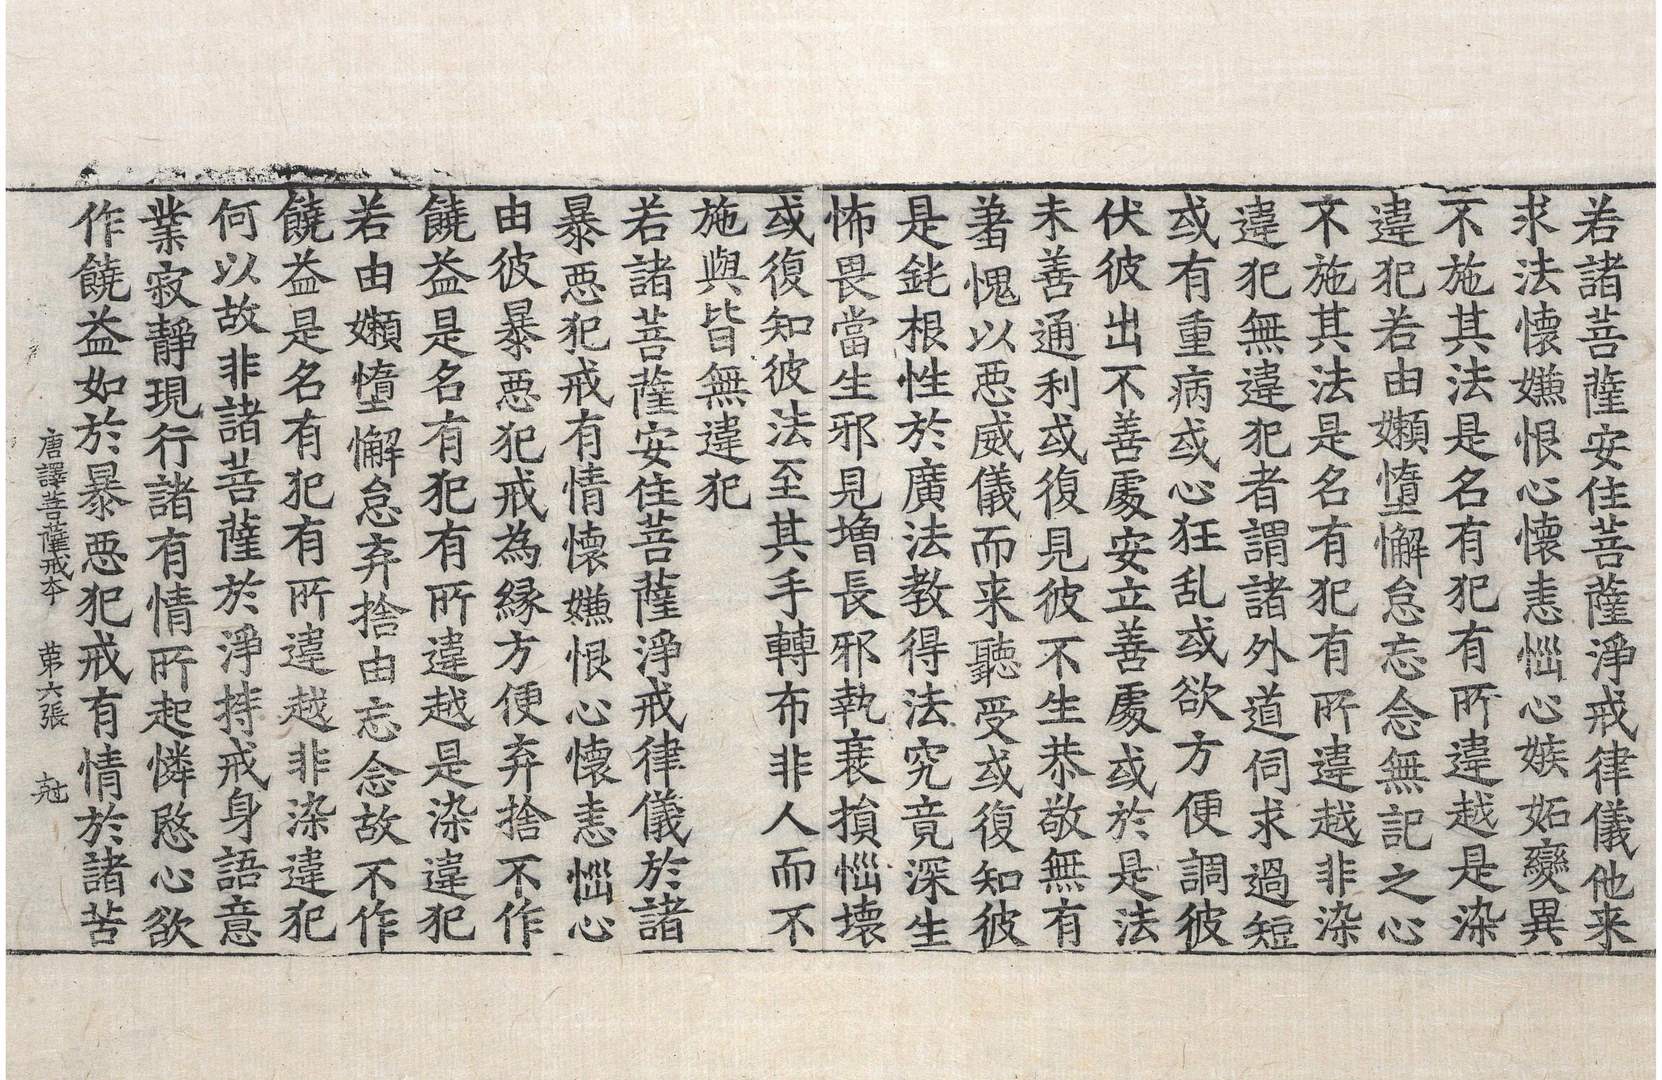 若諸菩薩安住菩薩淨戒律儀他来
求法懷嫌恨心懷恚惱心嫉妬變異
不施其法是名有犯有所違越是染
違犯若由嬾墮懈怠忘念無記之心
不施其法是名有犯有所違越非染
違犯無違犯者謂諸外道伺求過短
或有重病或心狂乱或欲方便調彼
伏彼出不善處安立善處或於是法
未善通利或復見彼不生恭敬無有
羞愧以惡威儀而来聽受或復知彼
是鈍根性於廣法教得法究竟深生
怖畏當生邪見增長邪執衰損惱壞
或復知彼法至其手轉布非人而不
施與皆無違犯
若諸菩薩安住菩薩淨戒律儀於諸
暴惡犯戒有情懷嫌恨心懷恚惱心
由彼暴惡犯戒為緣方便弃捨不作
饒益是名有犯有所違越是染違犯
若由嬾墮懈怠弃捨由忘念故不作
饒益是名有犯有所違越非染違犯
何以故非諸菩薩於淨持戒身語意
業寂靜現行諸有情所起憐愍心欲
作饒益如於暴惡犯戒有情於諸苦
唐譯菩薩戒本 第六張 冠